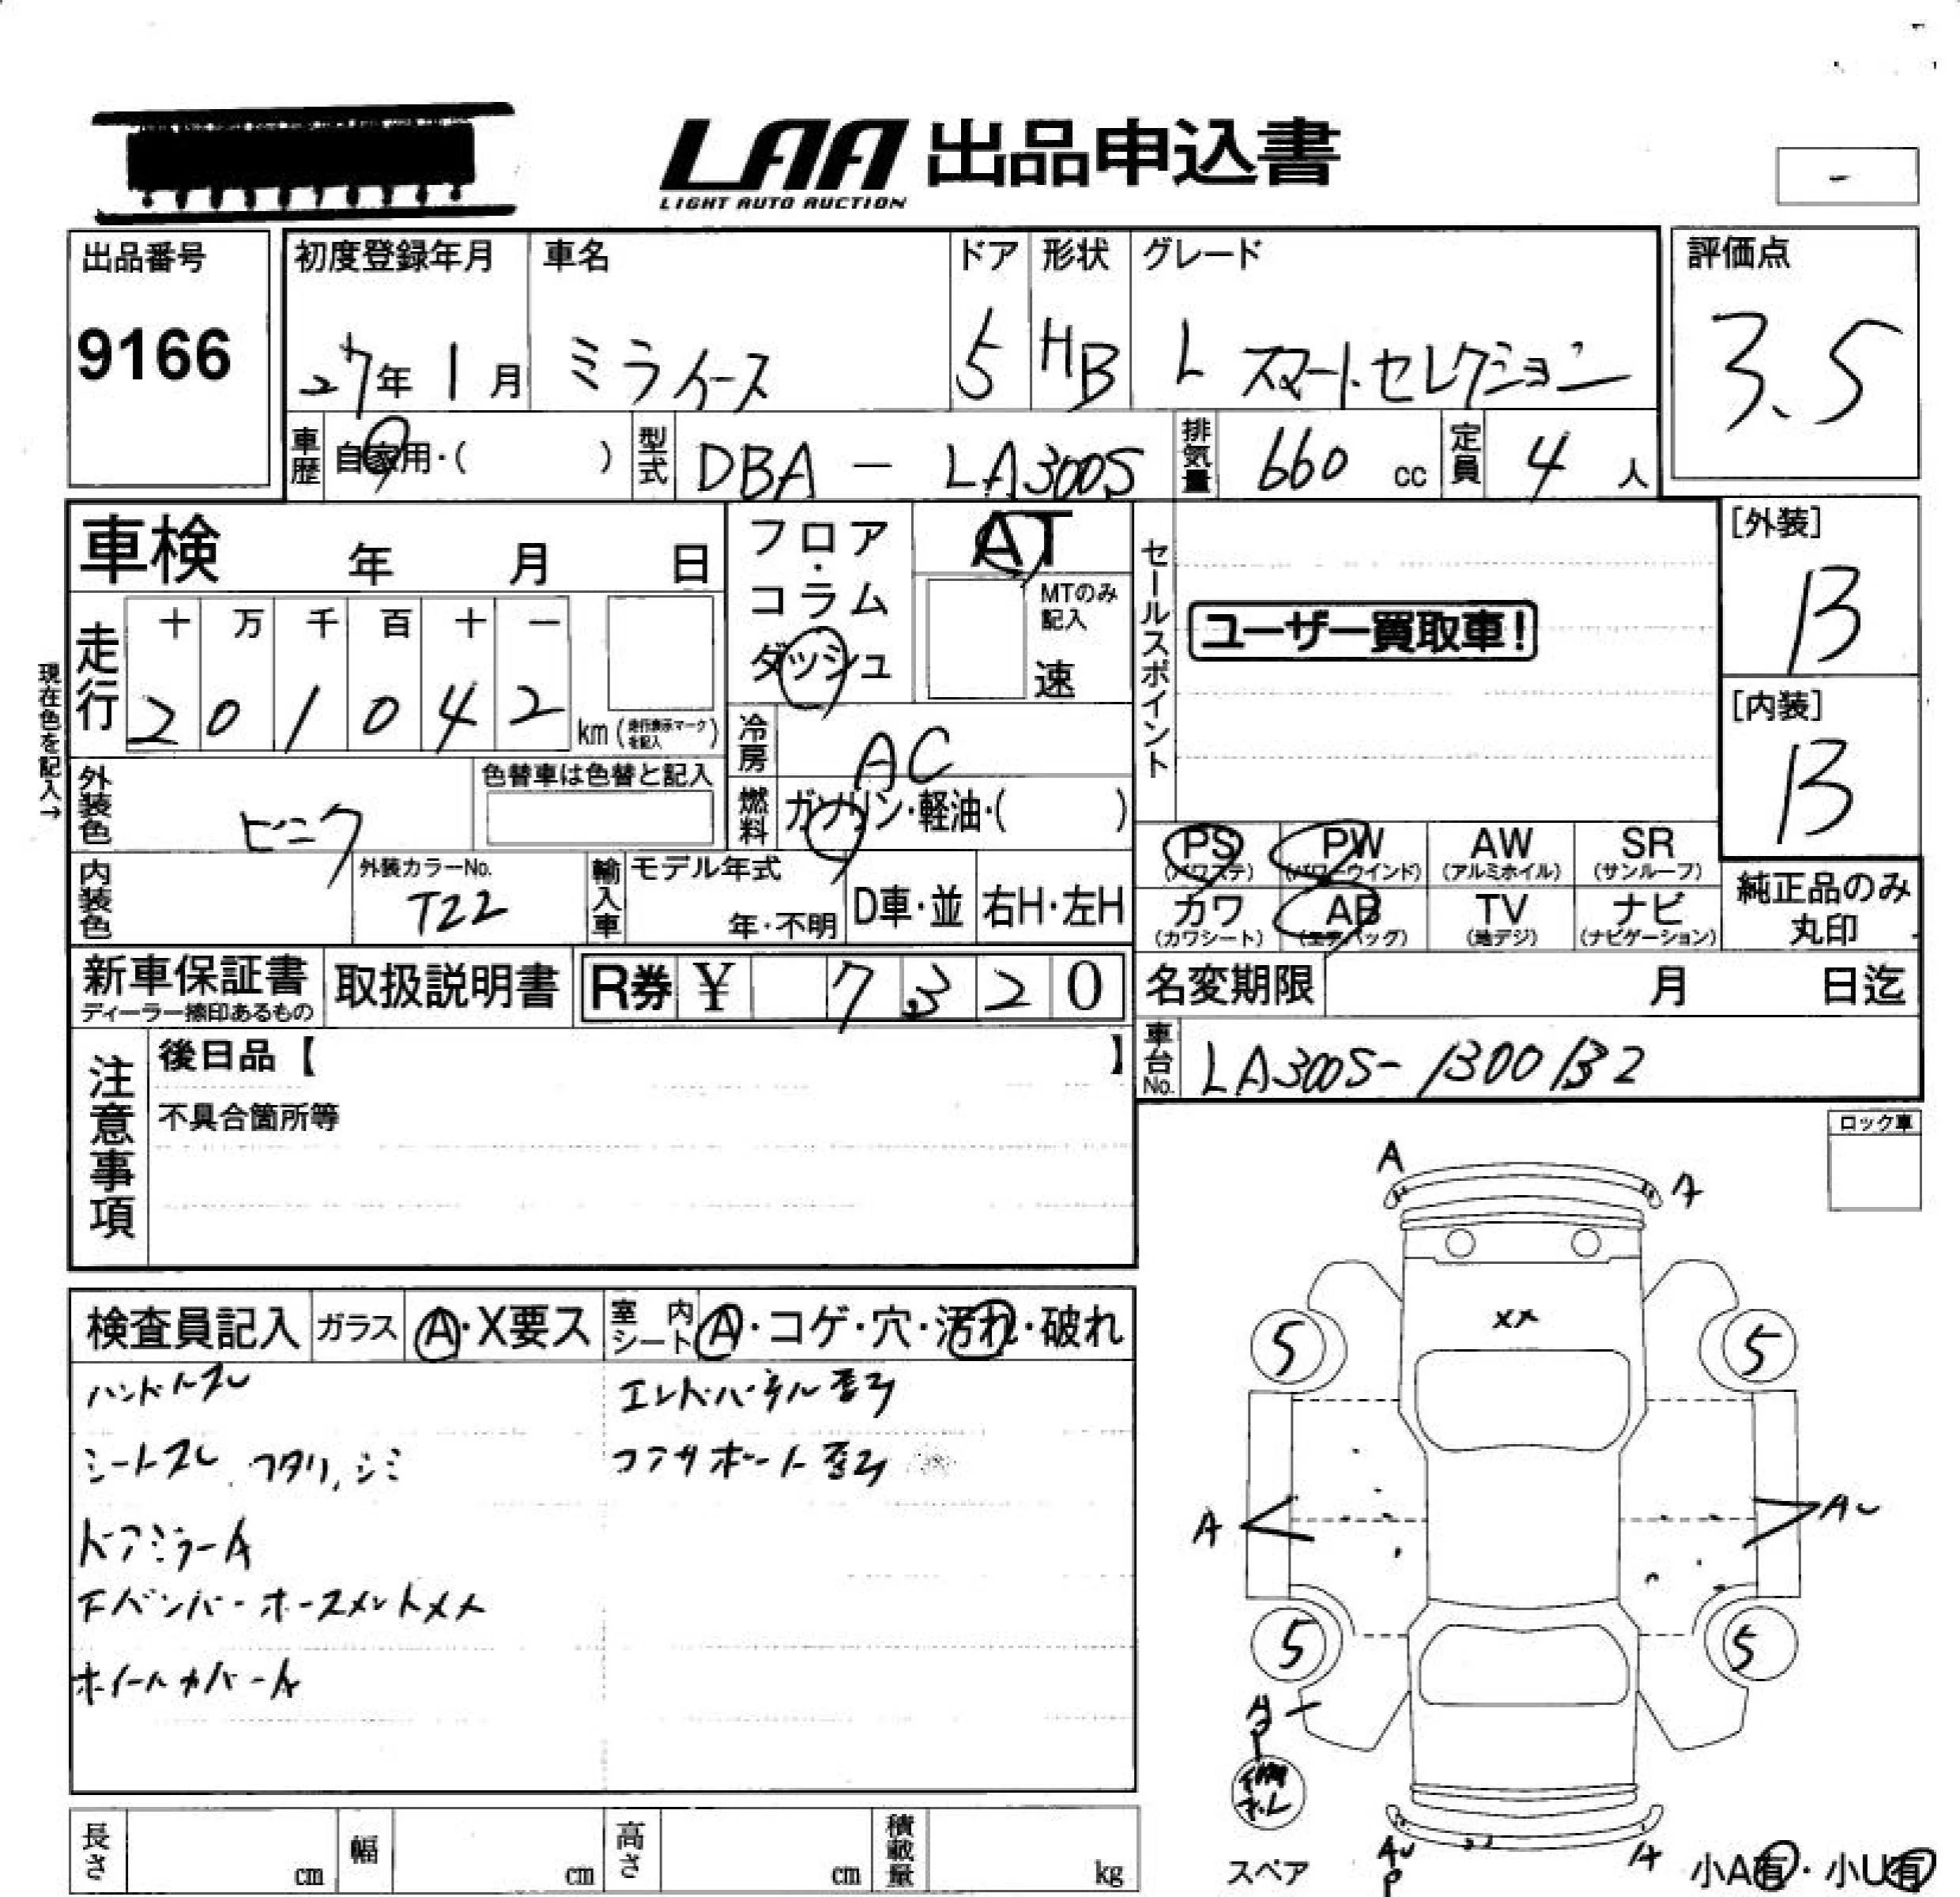 LAA 出品申込書
LIGHT AUTO AUCTION
-
出品番号
9166
初度登録年月
27年1月
車名
ミライース
ドア
5
形状
HB
グレード
L スマートセレクション
評価点
3.5
車歴 自家用・( )
型式 DBA - LA300S
排気量 660 cc
定員 4 人
車検 年 月 日
走行 十 万 千 百 十 一
2 0 1 0 4 2 km (走行表示マークを記入)
現在色を記入→
外装色
ピンク
色替車は色替と記入
内装色
外装カラーNo.
T22
フロア・コラム
ダッシュ
AT
MTのみ記入
速
冷房 AC
燃料 ガソリン・軽油・( )
輸入車 モデル年式
年・不明 D車・並 右H・左H
セールスポイント
ユーザー買取車!
[外装]
B
[内装]
B
PS (パワステ) PW (パワーウインド) AW (アルミホイル) SR (サンルーフ)
カワ (カワシート) AB (エアバッグ) TV (地デジ) ナビ (ナビゲーション)
純正品のみ
丸印
新車保証書
ディーラー捺印あるもの
取扱説明書
R券 ¥ 7,320
名変期限 月 日迄
車台No. LA300S-1300132
注意事項
後日品【 】
不具合箇所等
ロック車
検査員記入 ガラス Ⓐ・X要ス 室内シート Ⓐ・コゲ・穴・汚れ・破れ
ハンドルスレ
シートスレ、フタリ、シミ
ドアミラーA
Fバンパーホースメントメメ
ホイールカバーA
エンドパネル歪み
コアサポート歪み
A A
XX
5 5
A AU
5 5
A
P
AU
P
A
スペア
小A有・小U有
長さ cm
幅 cm
高さ cm
積載量 kg